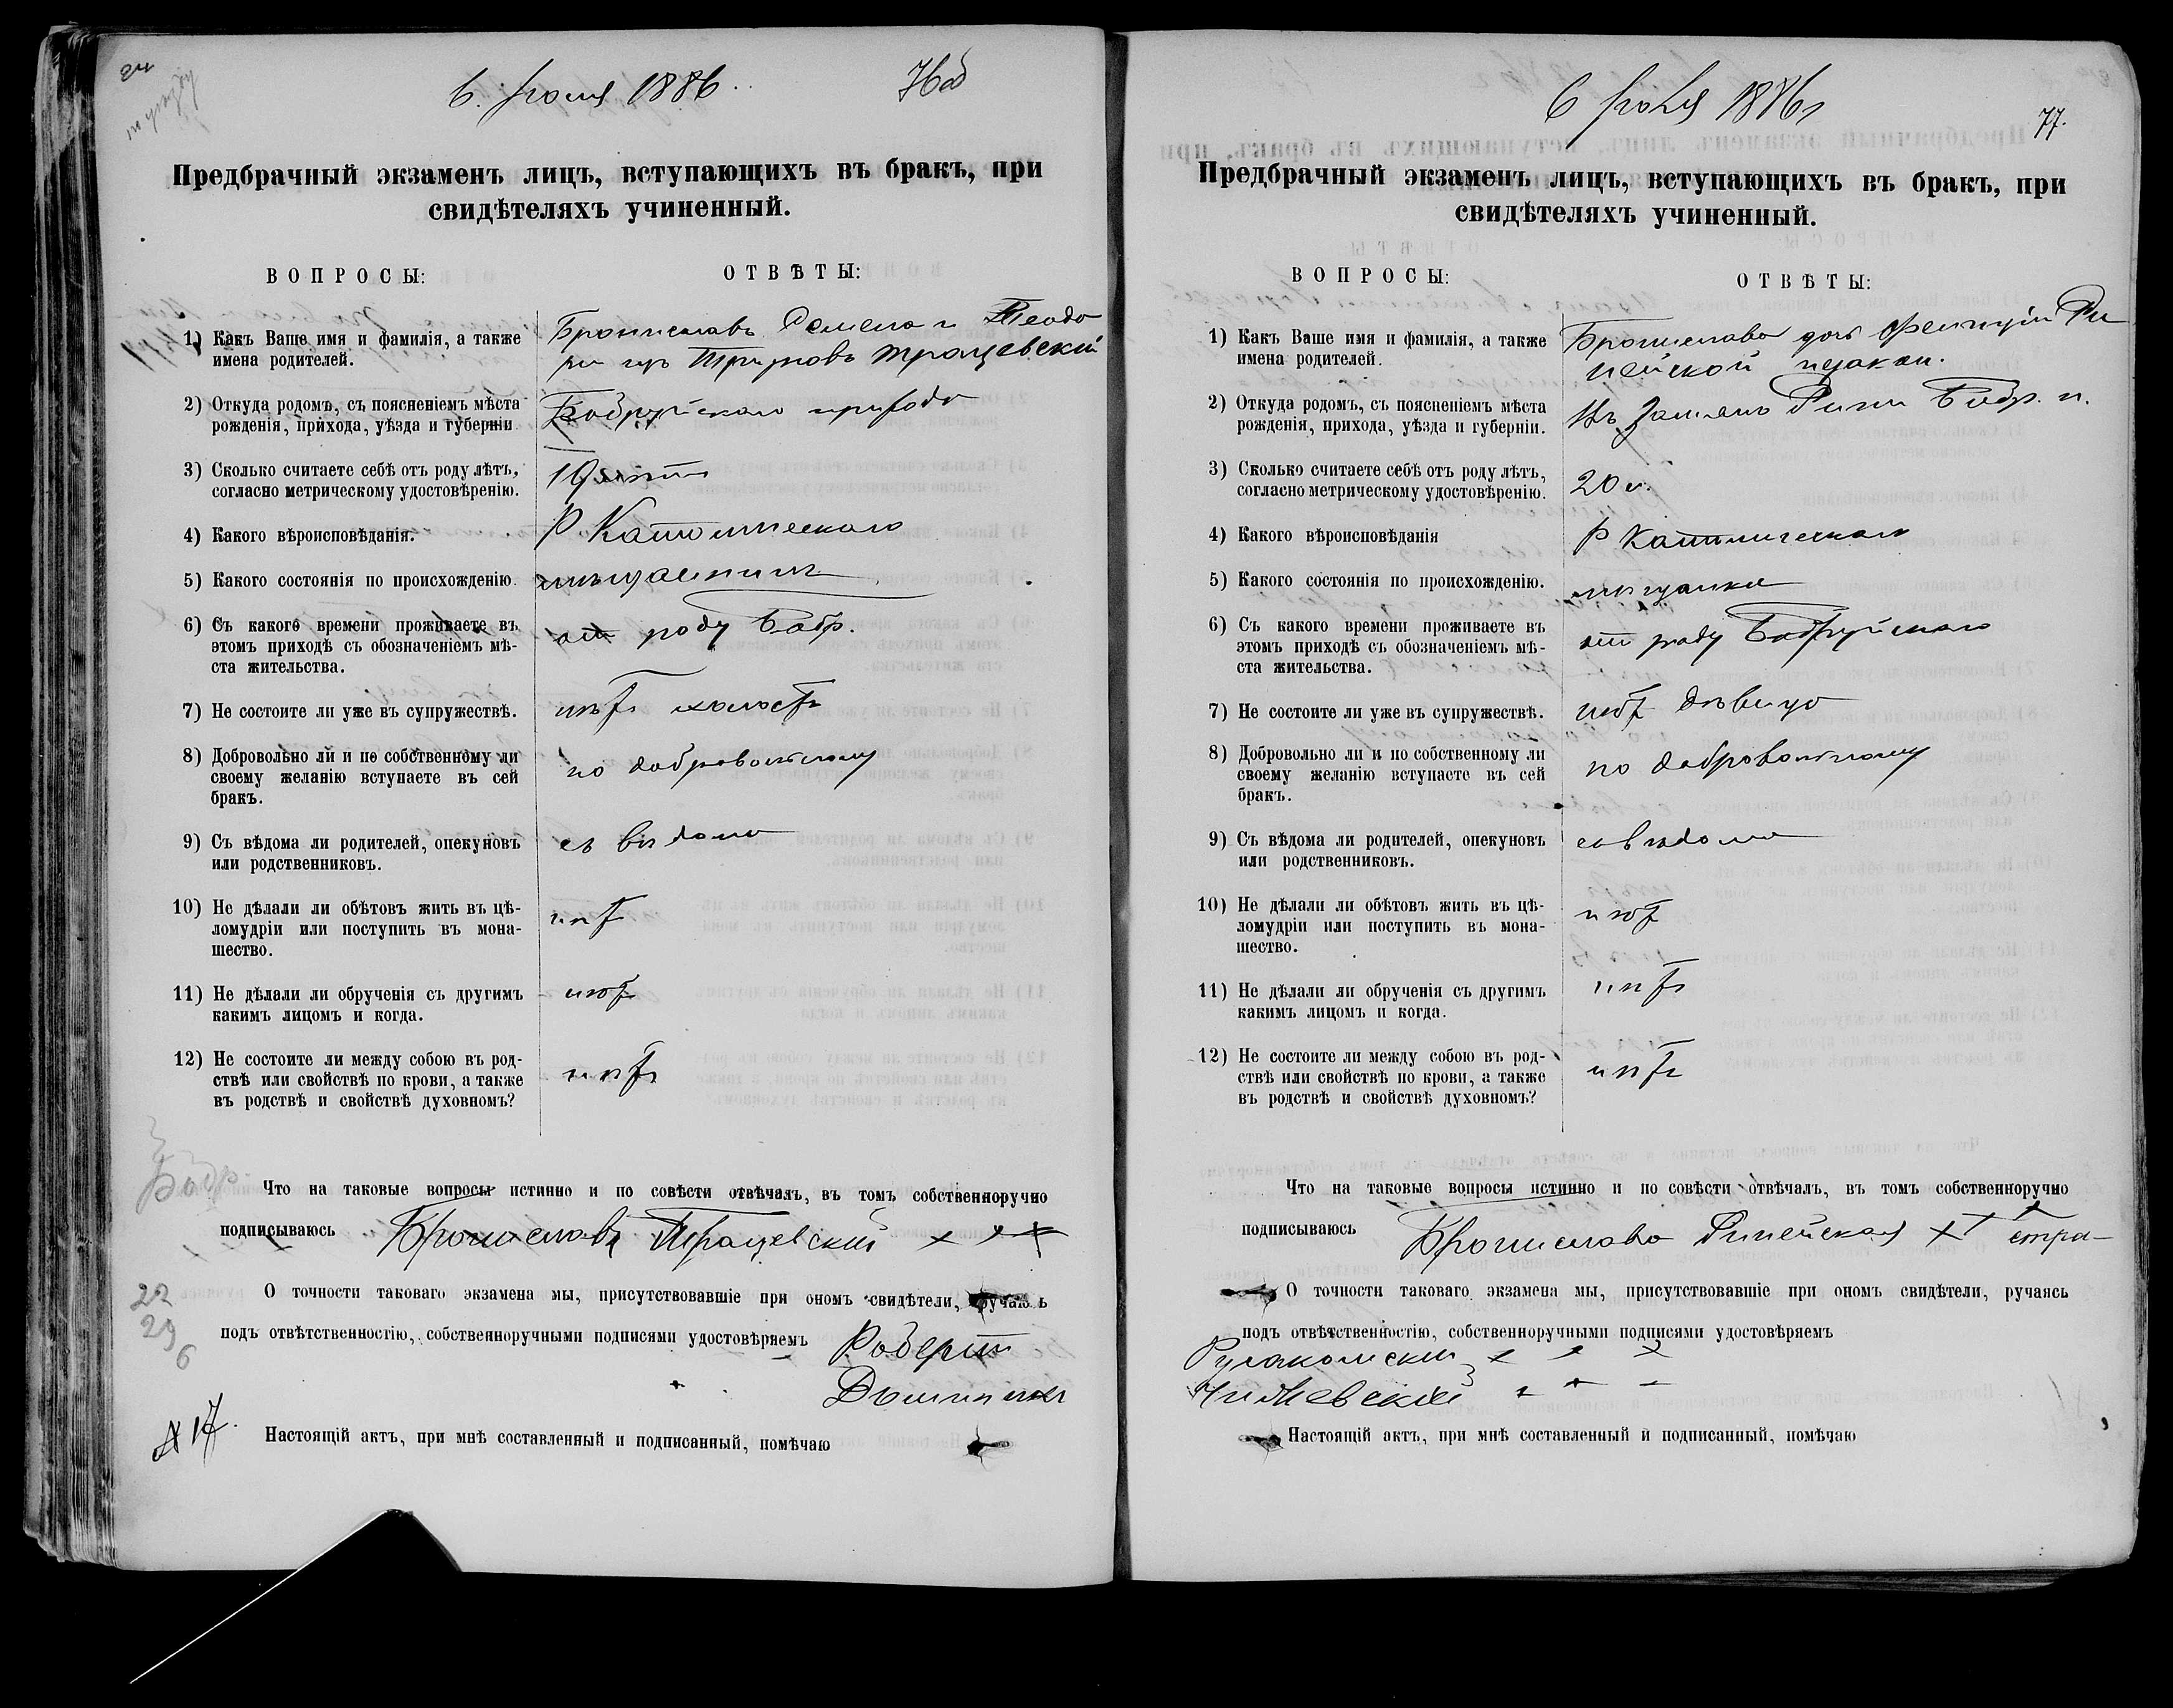 6. Іюля 1886.
76об
Предбрачный экзаменъ лицъ, вступающихъ въ бракъ, при
свидѣтеляхъ учиненный.
ВОПРОСЫ:
ОТВѢТЫ:
1) Какъ Ваше имя и фамилія, а также
имена родителей.
Брониславъ
2) Откуда родомъ, съ поясненіемъ мѣста
рожденія, прихода, уѣзда и губерніи.
Бобруйскаго прихода
3) Сколько считаете себѣ отъ роду лѣтъ,
согласно метрическому удостовѣренію.
19 лѣтъ
4) Какого вѣроисповѣданія.
Р Католическаго
5) Какого состоянія по происхожденію.
мѣщанинъ
6) Съ какого времени проживаете въ
этомъ приходѣ съ обозначеніемъ мѣ-
ста жительства.
отъ роду Бобр.
7) Не состоите ли уже въ супружествѣ.
нѣтъ холостъ
8) Добровольно ли и по собственному ли
своему желанію вступаете въ сей
бракъ.
по добровольному
9) Съ вѣдома ли родителей, опекуновъ
или родственниковъ.
съ вѣдома
10) Не дѣлали ли обѣтовъ жить въ цѣ-
ломудріи или поступить въ мона-
шество.
нѣтъ
11) Не дѣлали ли обрученія съ другимъ
какимъ лицомъ и когда.
нѣтъ
12) Не состоите ли между собою въ род-
ствѣ или свойствѣ по крови, а также
въ родствѣ и свойствѣ духовномъ?
нѣтъ
Бобр.
Что на таковые вопросы истинно и по совѣсти отвѣчалъ, въ томъ собственноручно
подписываюсь Брониславъ Трацевскій × × ×
22
29
6
О точности таковаго экзамена мы, присутствовавшіе при ономъ свидѣтели, ручаясь
подъ отвѣтственностію, собственноручными подписями удостовѣряемъ Робертъ
№ 17.
Настоящій актъ, при мнѣ составленный и подписанный, помѣчаю
6 Іюля 1886 г
77.
Предбрачный экзаменъ лицъ, вступающихъ въ бракъ, при
свидѣтеляхъ учиненный.
ВОПРОСЫ:
ОТВѢТЫ:
1) Какъ Ваше имя и фамилія, а также
имена родителей.
Бронислава дочь
2) Откуда родомъ, съ поясненіемъ мѣста
рожденія, прихода, уѣзда и губерніи.
Бобр. п.
3) Сколько считаете себѣ отъ роду лѣтъ,
согласно метрическому удостовѣренію.
20 л.
4) Какого вѣроисповѣданія
Р Католическаго
5) Какого состоянія по происхожденію.
мѣщанка
6) Съ какого времени проживаете въ
этомъ приходѣ съ обозначеніемъ мѣ-
ста жительства.
отъ роду Бобруйскаго
7) Не состоите ли уже въ супружествѣ.
нѣтъ дѣвица
8) Добровольно ли и по собственному ли
своему желанію вступаете въ сей
бракъ.
по добровольному
9) Съ вѣдома ли родителей, опекуновъ
или родственниковъ.
съ вѣдома
10) Не дѣлали ли обѣтовъ жить въ цѣ-
ломудріи или поступить въ мона-
шество.
нѣтъ
11) Не дѣлали ли обрученія съ другимъ
какимъ лицомъ и когда.
нѣтъ
12) Не состоите ли между собою въ род-
ствѣ или свойствѣ по крови, а также
въ родствѣ и свойствѣ духовномъ?
нѣтъ
Что на таковые вопросы истинно и по совѣсти отвѣчалъ, въ томъ собственноручно
подписываюсь Бронислава
О точности таковаго экзамена мы, присутствовавшіе при ономъ свидѣтели, ручаясь
подъ отвѣтственностію, собственноручными подписями удостовѣряемъ
Чижевскій
Настоящій актъ, при мнѣ составленный и подписанный, помѣчаю